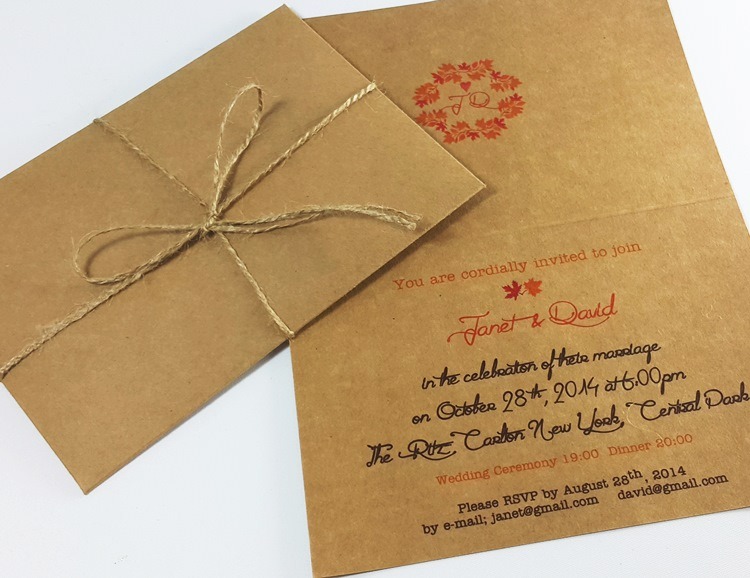 J D
You are cordially invited to join
Janet & David
in the celebration of their marriage
on October 28th, 2014 at 6.00pm
The Ritz, Carlton New York, Central Park
Wedding Ceremony 19:00 Dinner 20:00
Please RSVP by August 28th, 2014
by e-mail; janet@gmail.com david@gmail.com